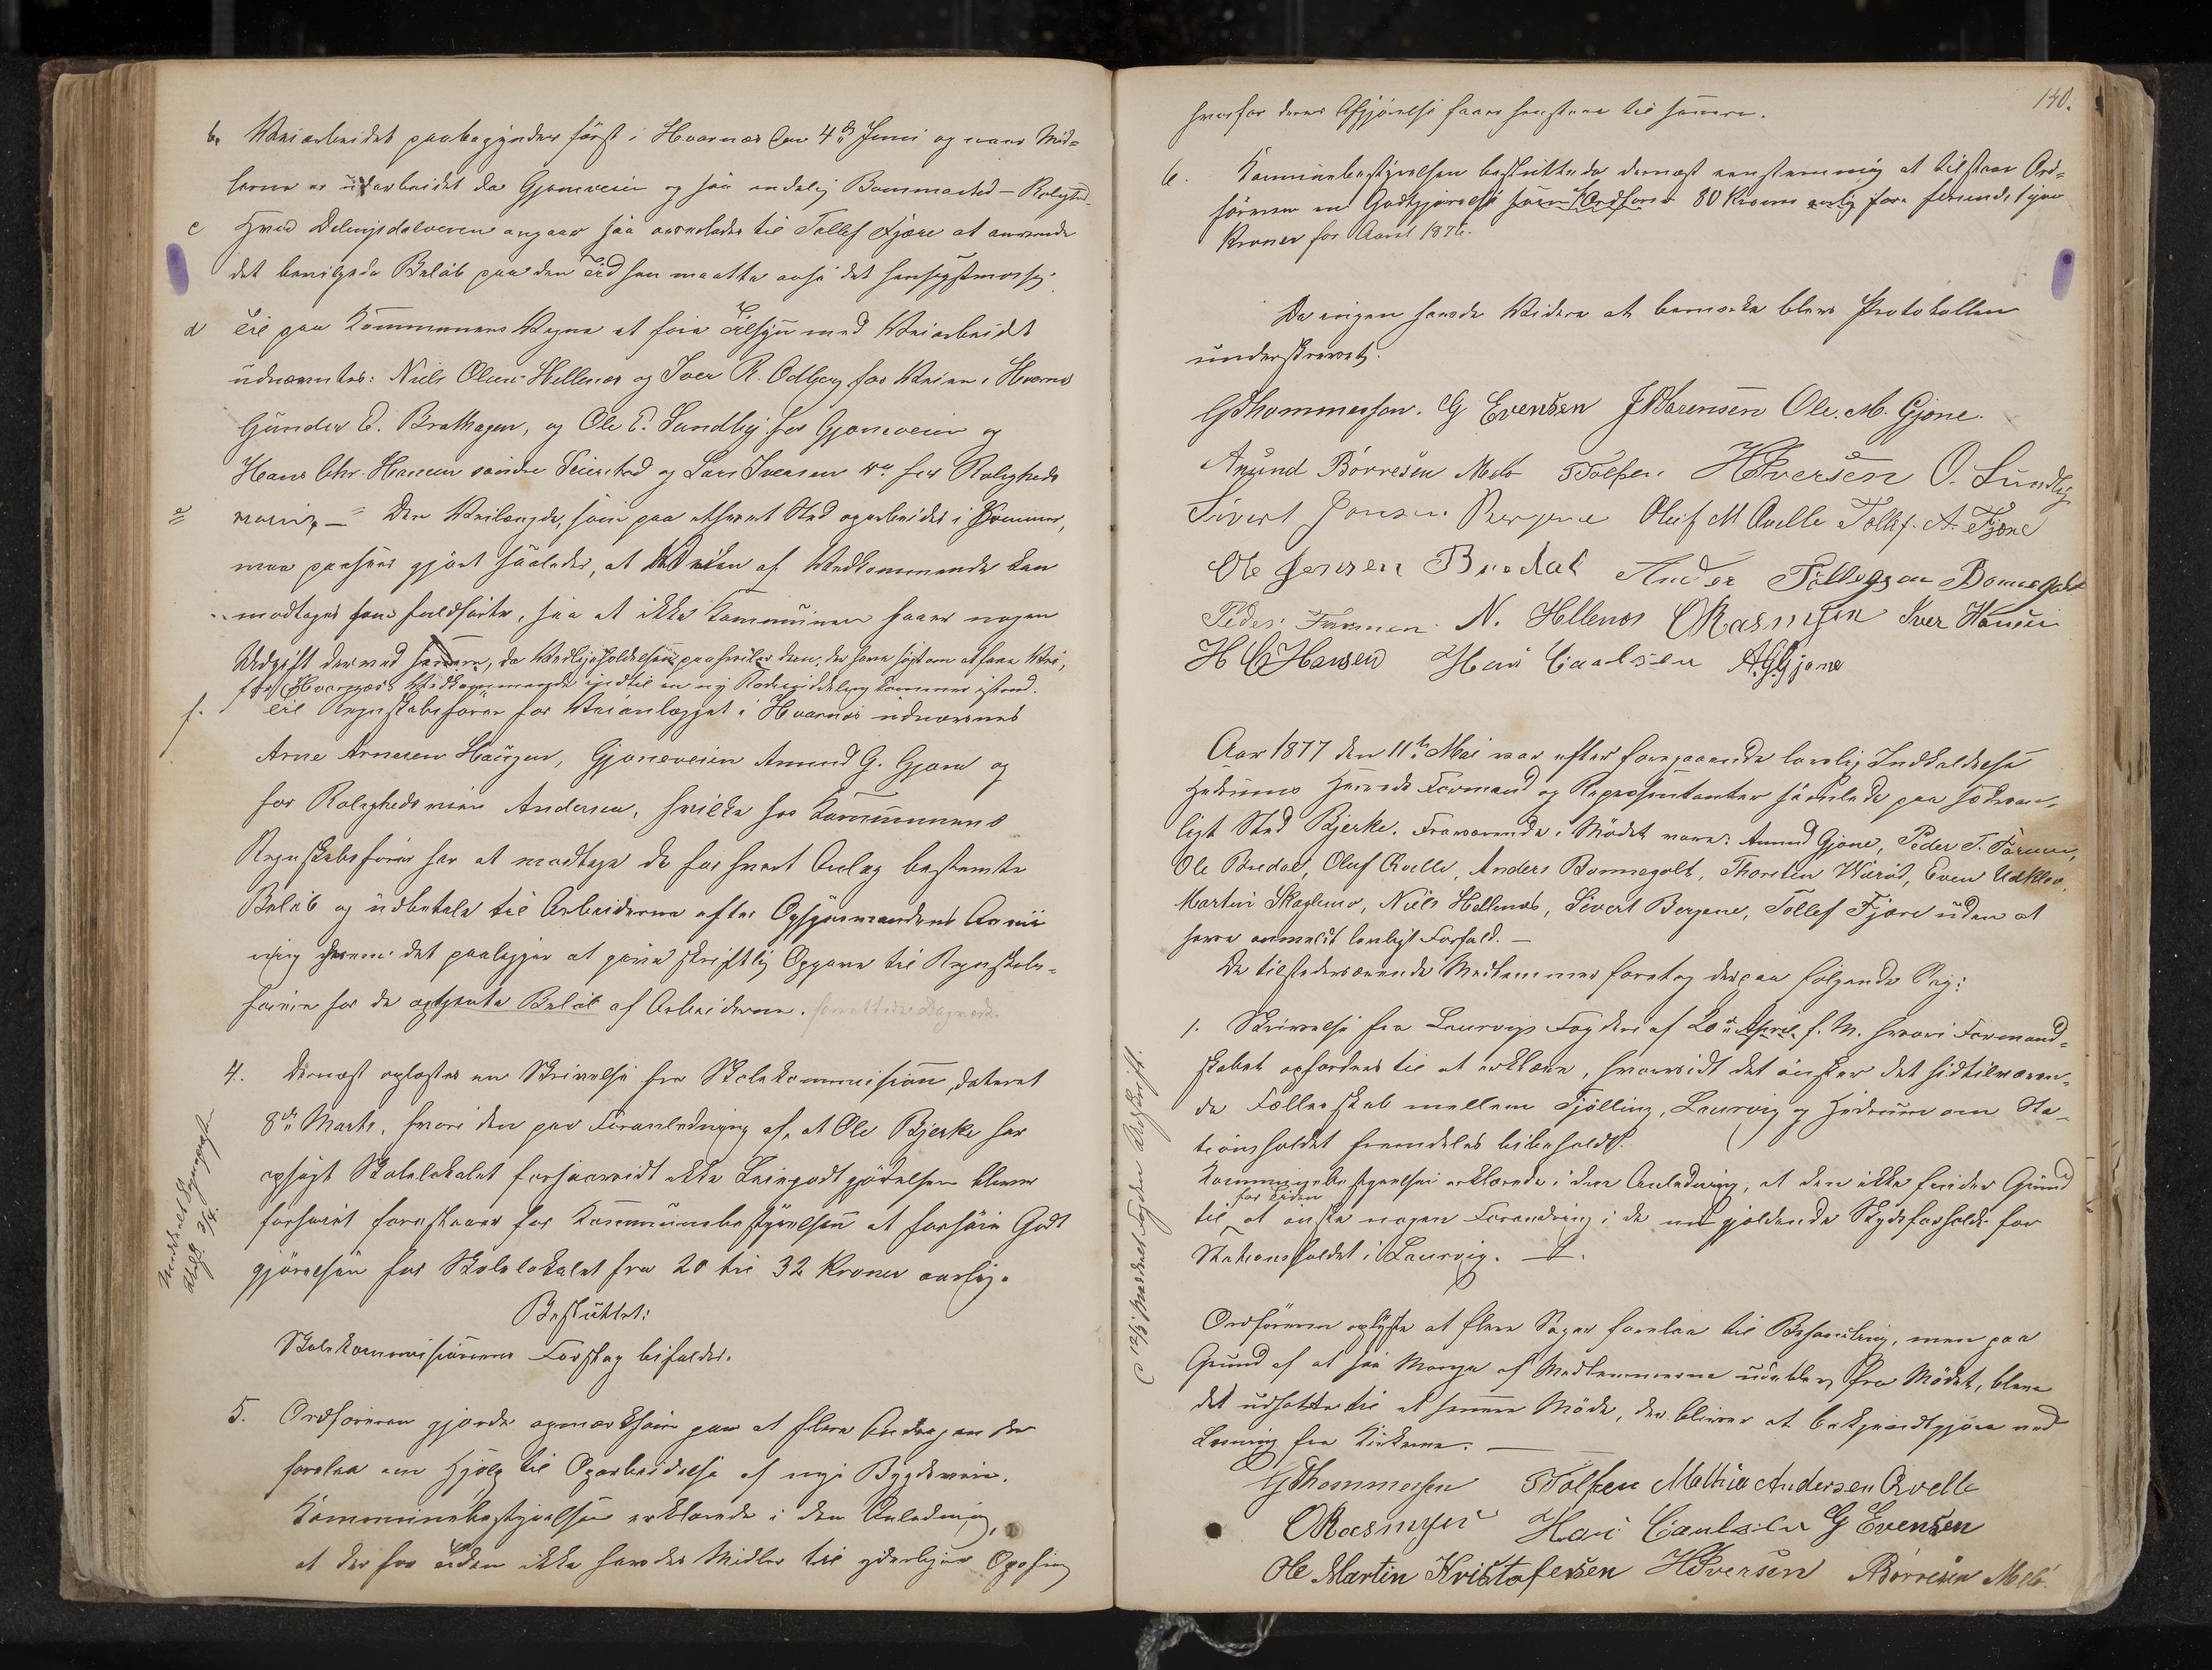 b. Veiarbeidet paabegyndes först i Hvarnæs den 4de Juni og naar Mid-
lerne er udarbeidet da Gjoneveien og saa endelig Bommested-Roligheds-
c Hvad Delingsdalveien angaar saa overlades til Tollef Fjære at anvende
det bevilgede Belöb paa den Tid han maatte anse det hensigtmæssig.
d Til paa Kommunens Vegne at före Tilsyn med Veiarbeidet
udnævntes: Niels Olsen Hellenæs og Iver R. Odberg for Veien i Hvarnæs
Gunder E. Brathagen, og Ole E. Sundby for Gjoneveien og
Hans Chr. Hansen søndre Seierstad og Lars Iversen for Roligheds
e veien, — Den Veilængde, som paa ethvert Sted oparbeides i Sommer,
maa paasees gjort saaledes, at Veien af Vedkommende kan
modtages som fuldført, saa at ikke Kommunen faaer nogen
Udgift derved, da Vedligeholdelsen paahviler dem, der have søgt om at faa Vei,
Hvarnæs Vedkommende indtil en ny Rodeinddeling kommer istand.
f. Til Regnskabsfører for Veianlægget i Hvarnæs udnævnes
Arne Arnesen Haugen, Gjoneveien Amund G. Gjone og
for Rolighedsveien Andersen, hvilke hos Kommunens
Regnskabsfører har at modtage de for hvert Anlæg bestemte
Belöb og udbetale til Arbeiderne efter Opsynsmandens Anvis
ning hvem det paaligger at give skriftlig Opgave til Regnskabs-
føreren for de optjente Belöb af Arbeiderne.
4. Dernæst oplæstes en Skrivelse fra Skolekommissionen dateret
8de Marts, hvori den paa Foranledning af, at Ole Bjerke har
opsagt Skolelokalet forsaavidt ikke Leiegodtgjörelsen bliver
forhøiet foreslaaer for Kommunebestyrelsen at forhöie Godt
gjörelsen for Skolelokalet fra 20 til 32 Kroner aarlig.
Besluttet:
Skolekommissionens Forslag bifaldes.
5. Ordføreren gjorde opmærksom paa at flere Andragender
forelaa om Hjælp til Oparbeidelse af nye Bygdeveie.
Kommunebestyrelsen erklærede i den Anledning,
at der for Tiden ikke havdes Midler til yderligere
140.
hvorfor deres Afgjörelse faar henstaa til senere.
6. Kommunebestyrelsen besluttede dernæst eenstemmig at tilstaa Ord-
føreren en Godtgjørelse som Ordfører 80 Kroner firsindstyve
Kroner for Aaret 1876.
Da ingen havde Videre at bemærke blev Protokollen
underskrevet.
G Thommesen. G Evensen J Sørensen Ole. M. Gjone.
Amund Børresen Melø T Tolfsen HIversen O. Sundby
Sivert Jonsen Bergene Oluf M Qvelle Tollef. A. Fjære
Ole Jensen Buedal Ander Tollegsen Bommegolt
Peder Farmen. N. Hellenæs ORasmusen Iver Hansen
H C Hansen Hans Paulsen AGGjone
Aar 1877 den 11te Mai var efter foregaaende lovlig Indkaldelse
Hedrums Herreds Formænd og Repræsentanter samlede paa sædvan-
ligt Sted Bjerke. Fraværende i Mödet vare: Amund Gjone, Peder T. Farmen,
Ole Buedal, Oluf Qvelle, Anders Bommegolt, Thorsten Vierød, Even Udklev,
Martin Skaglund, Niels Hellenæs, Sivert Bergene, Tollef Fjære uden at
have anmeldt lovligt Forfald. —
De tilstedeværende Medlemmer foretog derpaa følgende Sag:
1. Skrivelse fra Laurvigs Fogderi af 20de April f. M. hvori Formand-
skabet opfordres til at erklære, hvorvidt det ønsker det hidtilværen-
de Fællesskab mellem Tjølling, Laurvig og Hedrum om Sta-
tionsholdet fremdeles bibeholdt.
Kommunebestyrelsen erklærede i den Anledning, at den ikke finder Grund
for Tiden
til at ønske nogen Forandring i de nu gjældende Skydsforholde for
Stationsholdet i Laurvig. —
Ordføreren oplyste at flere Sager forelaa til Behandling, men paa
Grund af at saa Mange af Medlemmerne udeblev fra Mödet, bleve
det udsatte til et senere Möde, der bliver at bekjendtgjöre ved
Læsning fra Kirkerne. —
GThommesen TTolfsen Mathias Andersen Qvelle
ORasmusen Hans Paulsen G Evensen
Ole Martin Kristofersen HIversen ABørresen Melø.